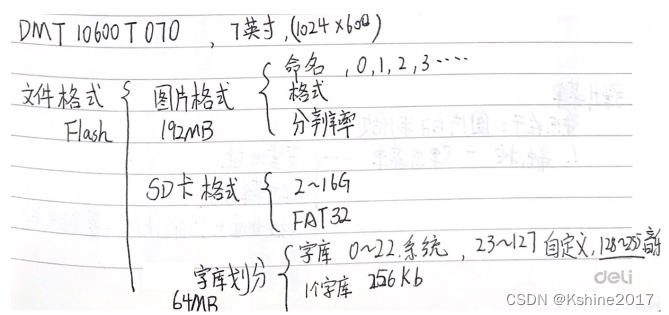 DMT10600T070 , 7英寸,(1024×600)
命名 ,0,1,2,3·····
文件格式 图片格式 格式
Flash 192MB 分辨率
SD卡格式 2~16G
FAT32
字库划分 字库 0~22.系统 ,23~127自定义,128~255
64MB 1个字库 256Kb
deli
CSDN @Kshine2017